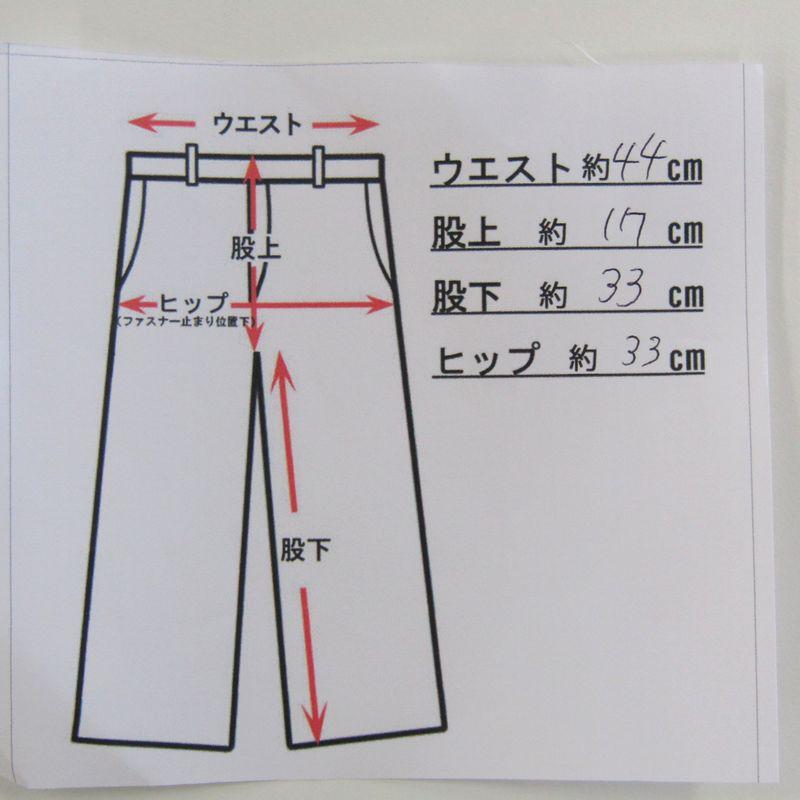 ウエスト
股上
ヒップ
(ファスナー止まり位置下)
股下
ウエスト 約44cm
股上 約 17 cm
股下 約 33 cm
ヒップ 約 33 cm